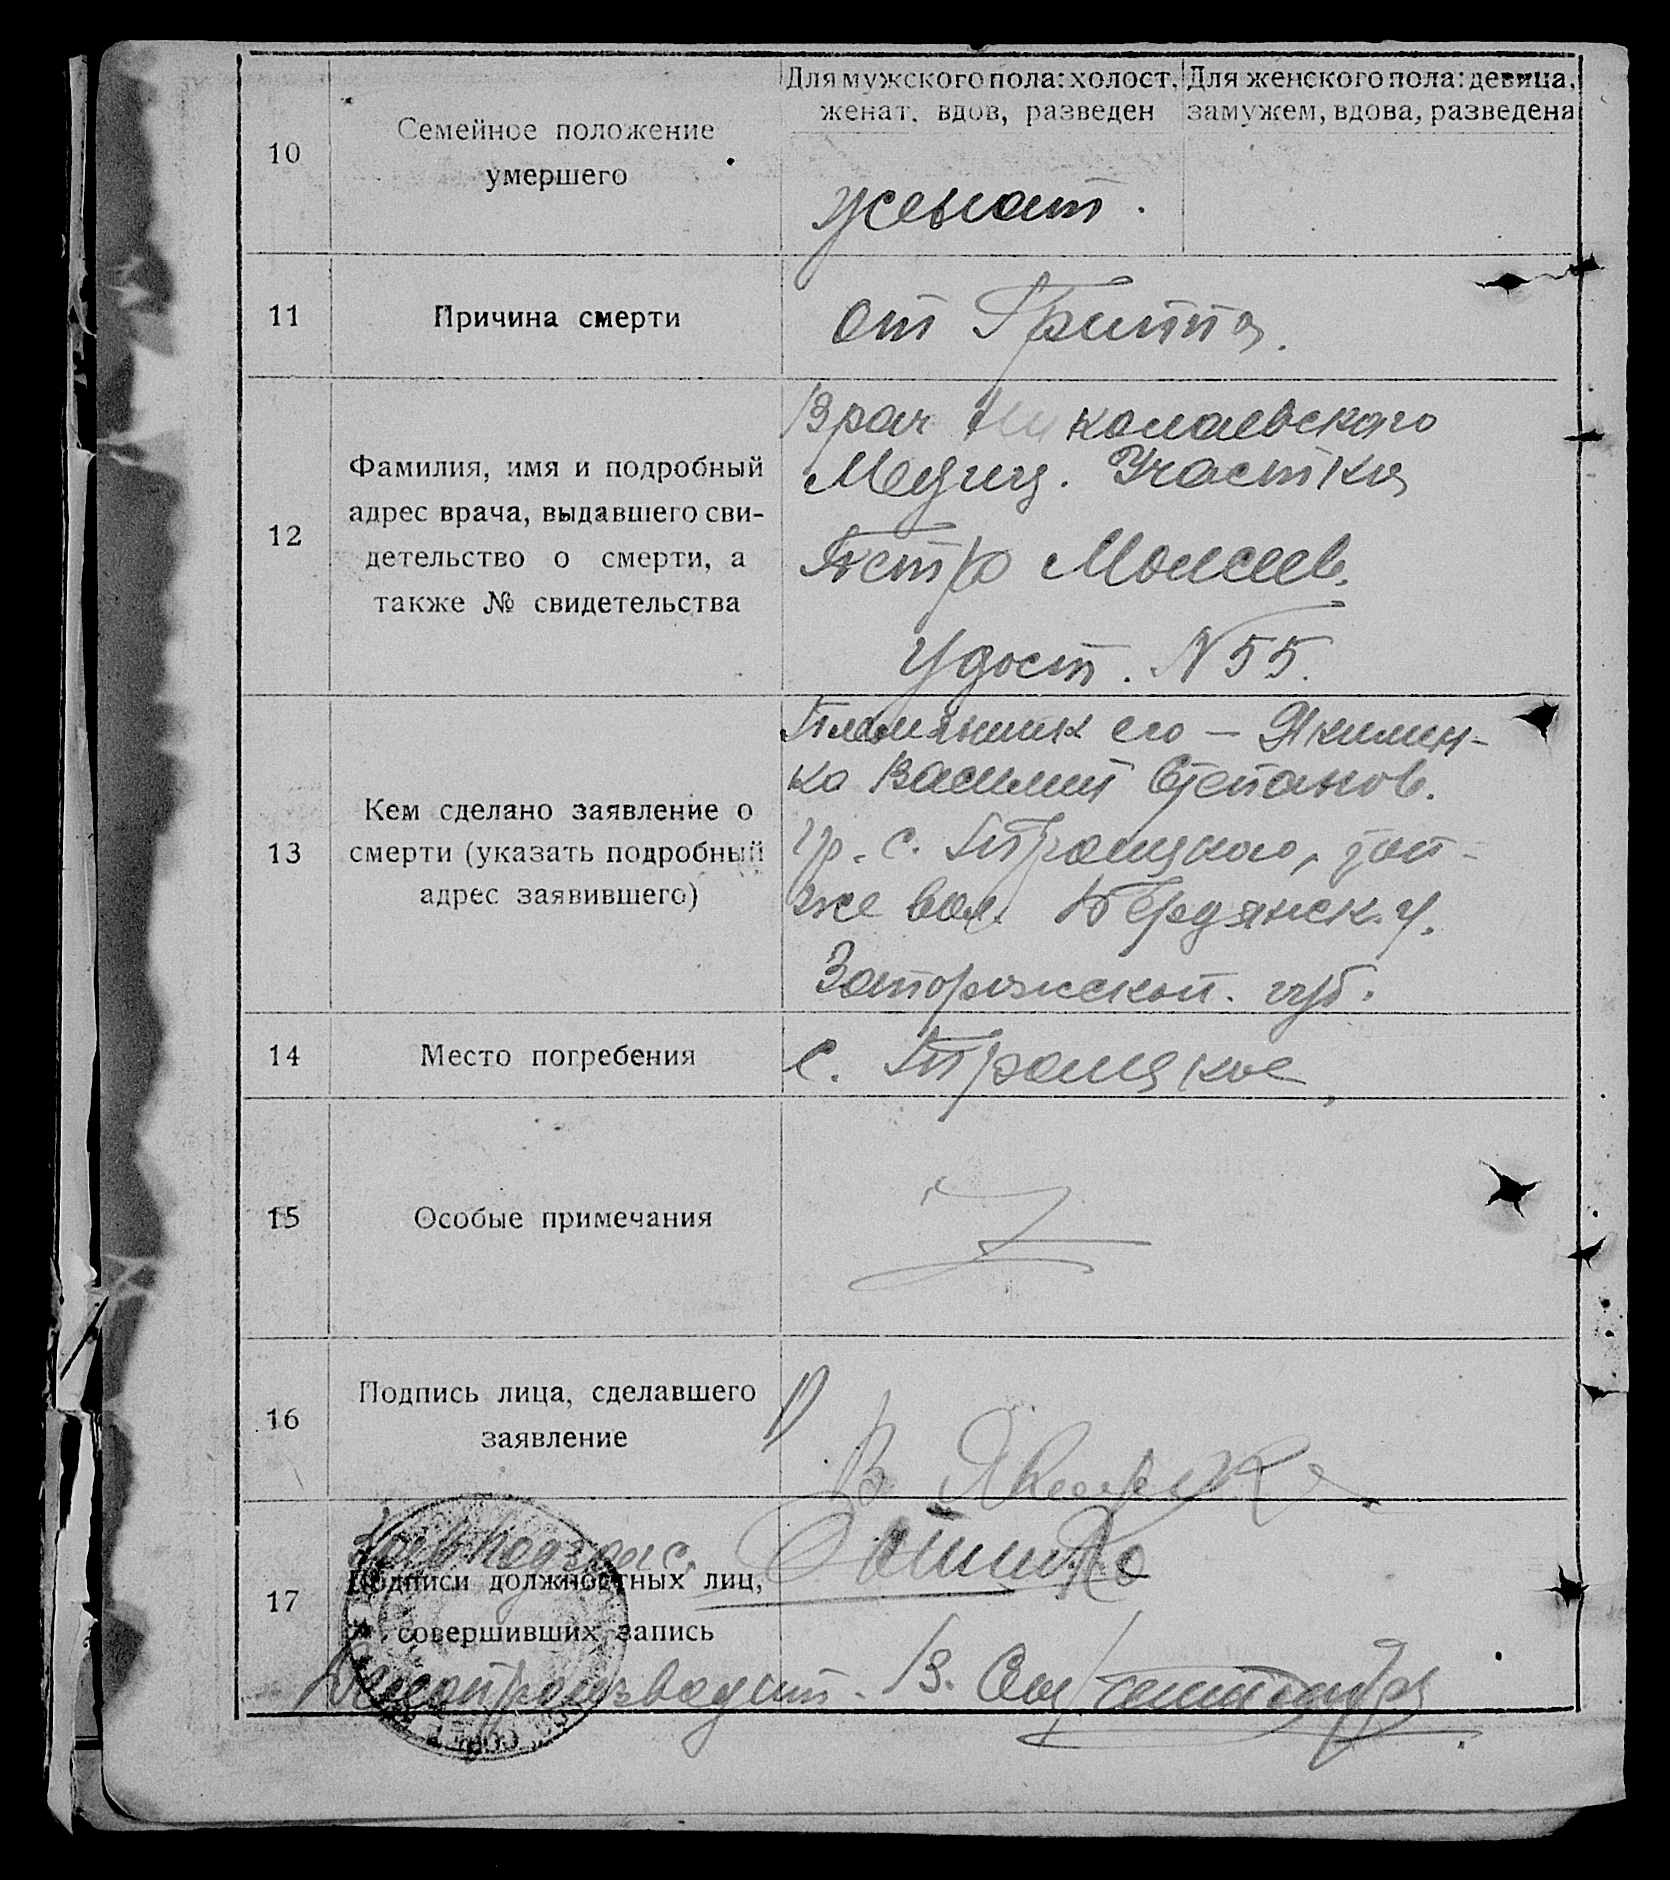 Для мужского пола: холост, женат, вдов, разведен
Для женского пола: девица, замужем, вдова, разведена
10
Семейное положение
умершего
женат.
11
Причина смерти
от Гриппа.
12
Фамилия, имя и подробный
адрес врача, выдавшего сви-
детельство о смерти, а
также № свидетельства
Врач Николаевского
Медиц. Участка
Петр Моисеев.
Удост. N 55.
13
Кем сделано заявление о
смерти (указать подробный
адрес заявившего)
Племянник его — Якимен-
ко Василий Степанов.
гр. с. Троицкого, той-
же вол. Бердянск. у.
Запорожской губ.
14
Место погребения
с. Троицкое
15
Особые примечания
16
Подпись лица, сделавшего
заявление
В
17
Подписи должностных лиц,
совершивших запись
Делопроизводит. В.